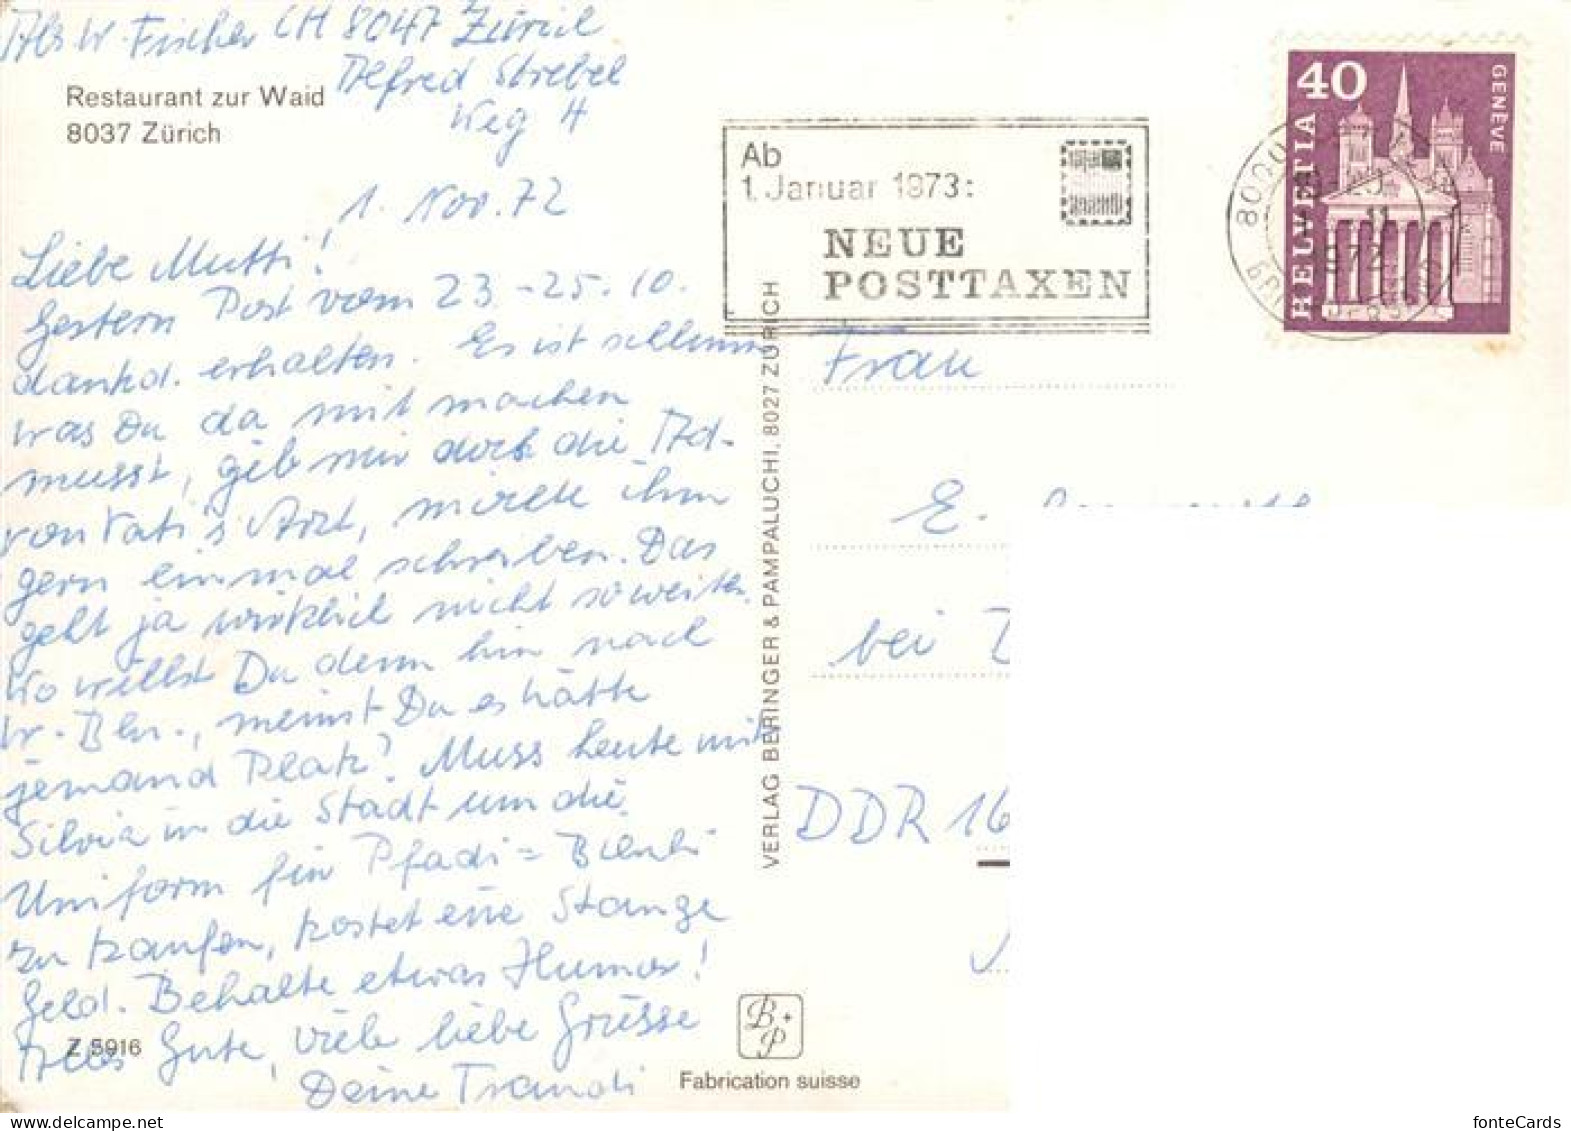 Abs. W. Fischer CH 8047 Zürich
Alfred Strebel
Weg 4
Restaurant zur Waid
8037 Zürich
1. Nov. 72
Liebe Mutti!
Gestern Post vom 23.-25. 10.
dankd. erhalten. Es ist schlimm
was Du da mit machen
musst, gib mir doch die Ad-
von Vati's Arzt, würde ihm
gern einmal schreiben. Das
geht ja wirklich nicht so weiter.
Wo willst Du denn hin nach
W. - Bln., meinst Du es hätte
jemand Platz? Muss heute mit
Silvia in die Stadt um die
Uniform für Pfadi = Bienli
zu kaufen, kostet eine Stange
Geld. Behalte etwas Humor!
Alles Gute, viele liebe Grüsse
Deine Traudi
Z 5916
VERLAG BERINGER & PAMPALUCHI, 8027 ZÜRICH
B+P
Fabrication suisse
Ab
1. Januar 1973:
NEUE
POSTTAXEN
40
HELVETIA
GENÈVE
Frau
E.
bei
DDR 16
fonteCards